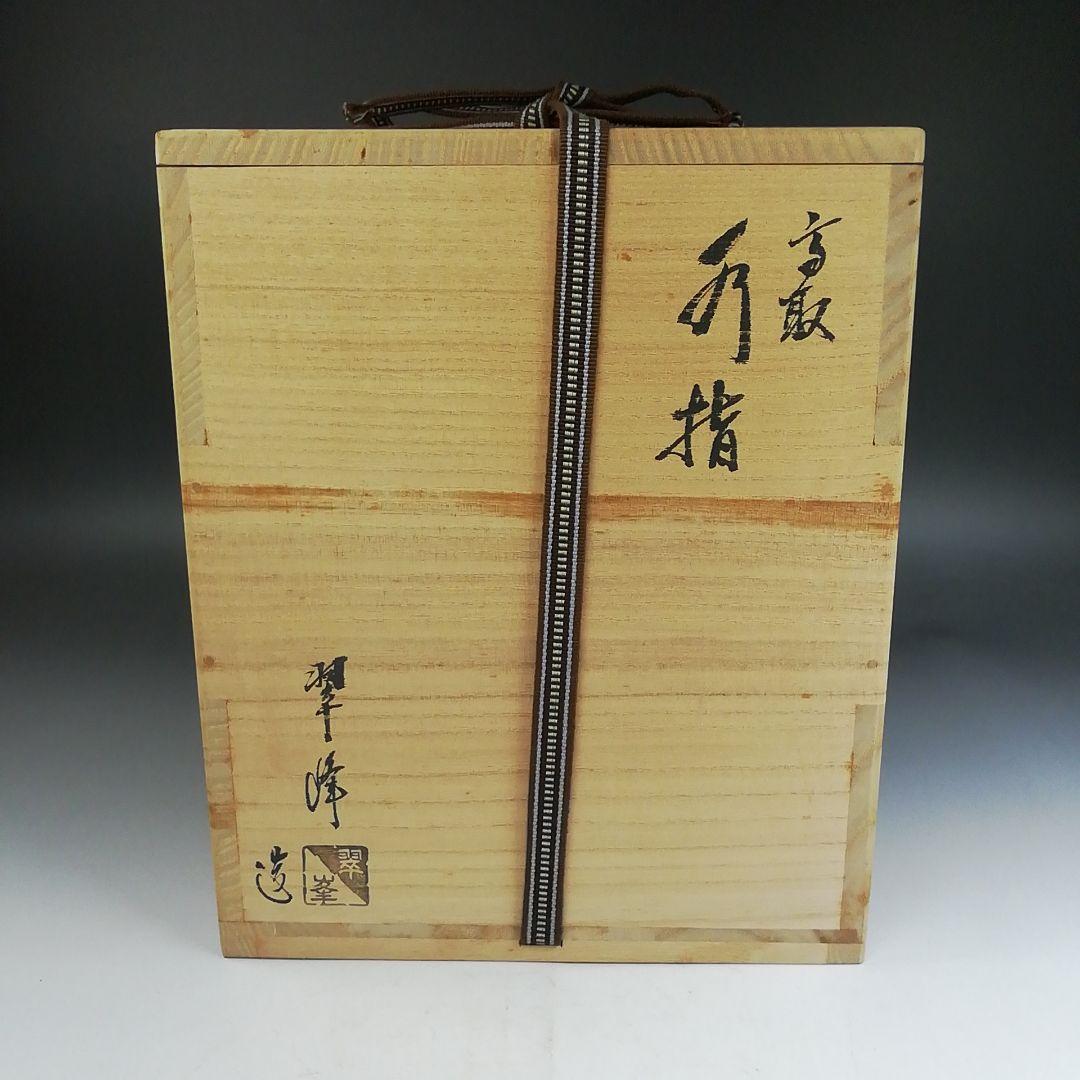 高取
水指
翠峰
造
翠峯